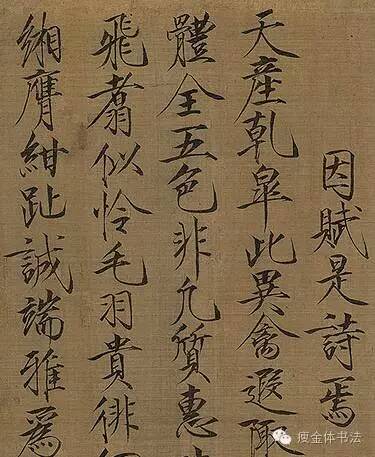 因賦是詩焉
天産乾皋此異禽遐陬
體全五色非凡質惠
飛翥似怜毛羽貴徘
緗膺紺趾誠端雅爲
瘦金体书法